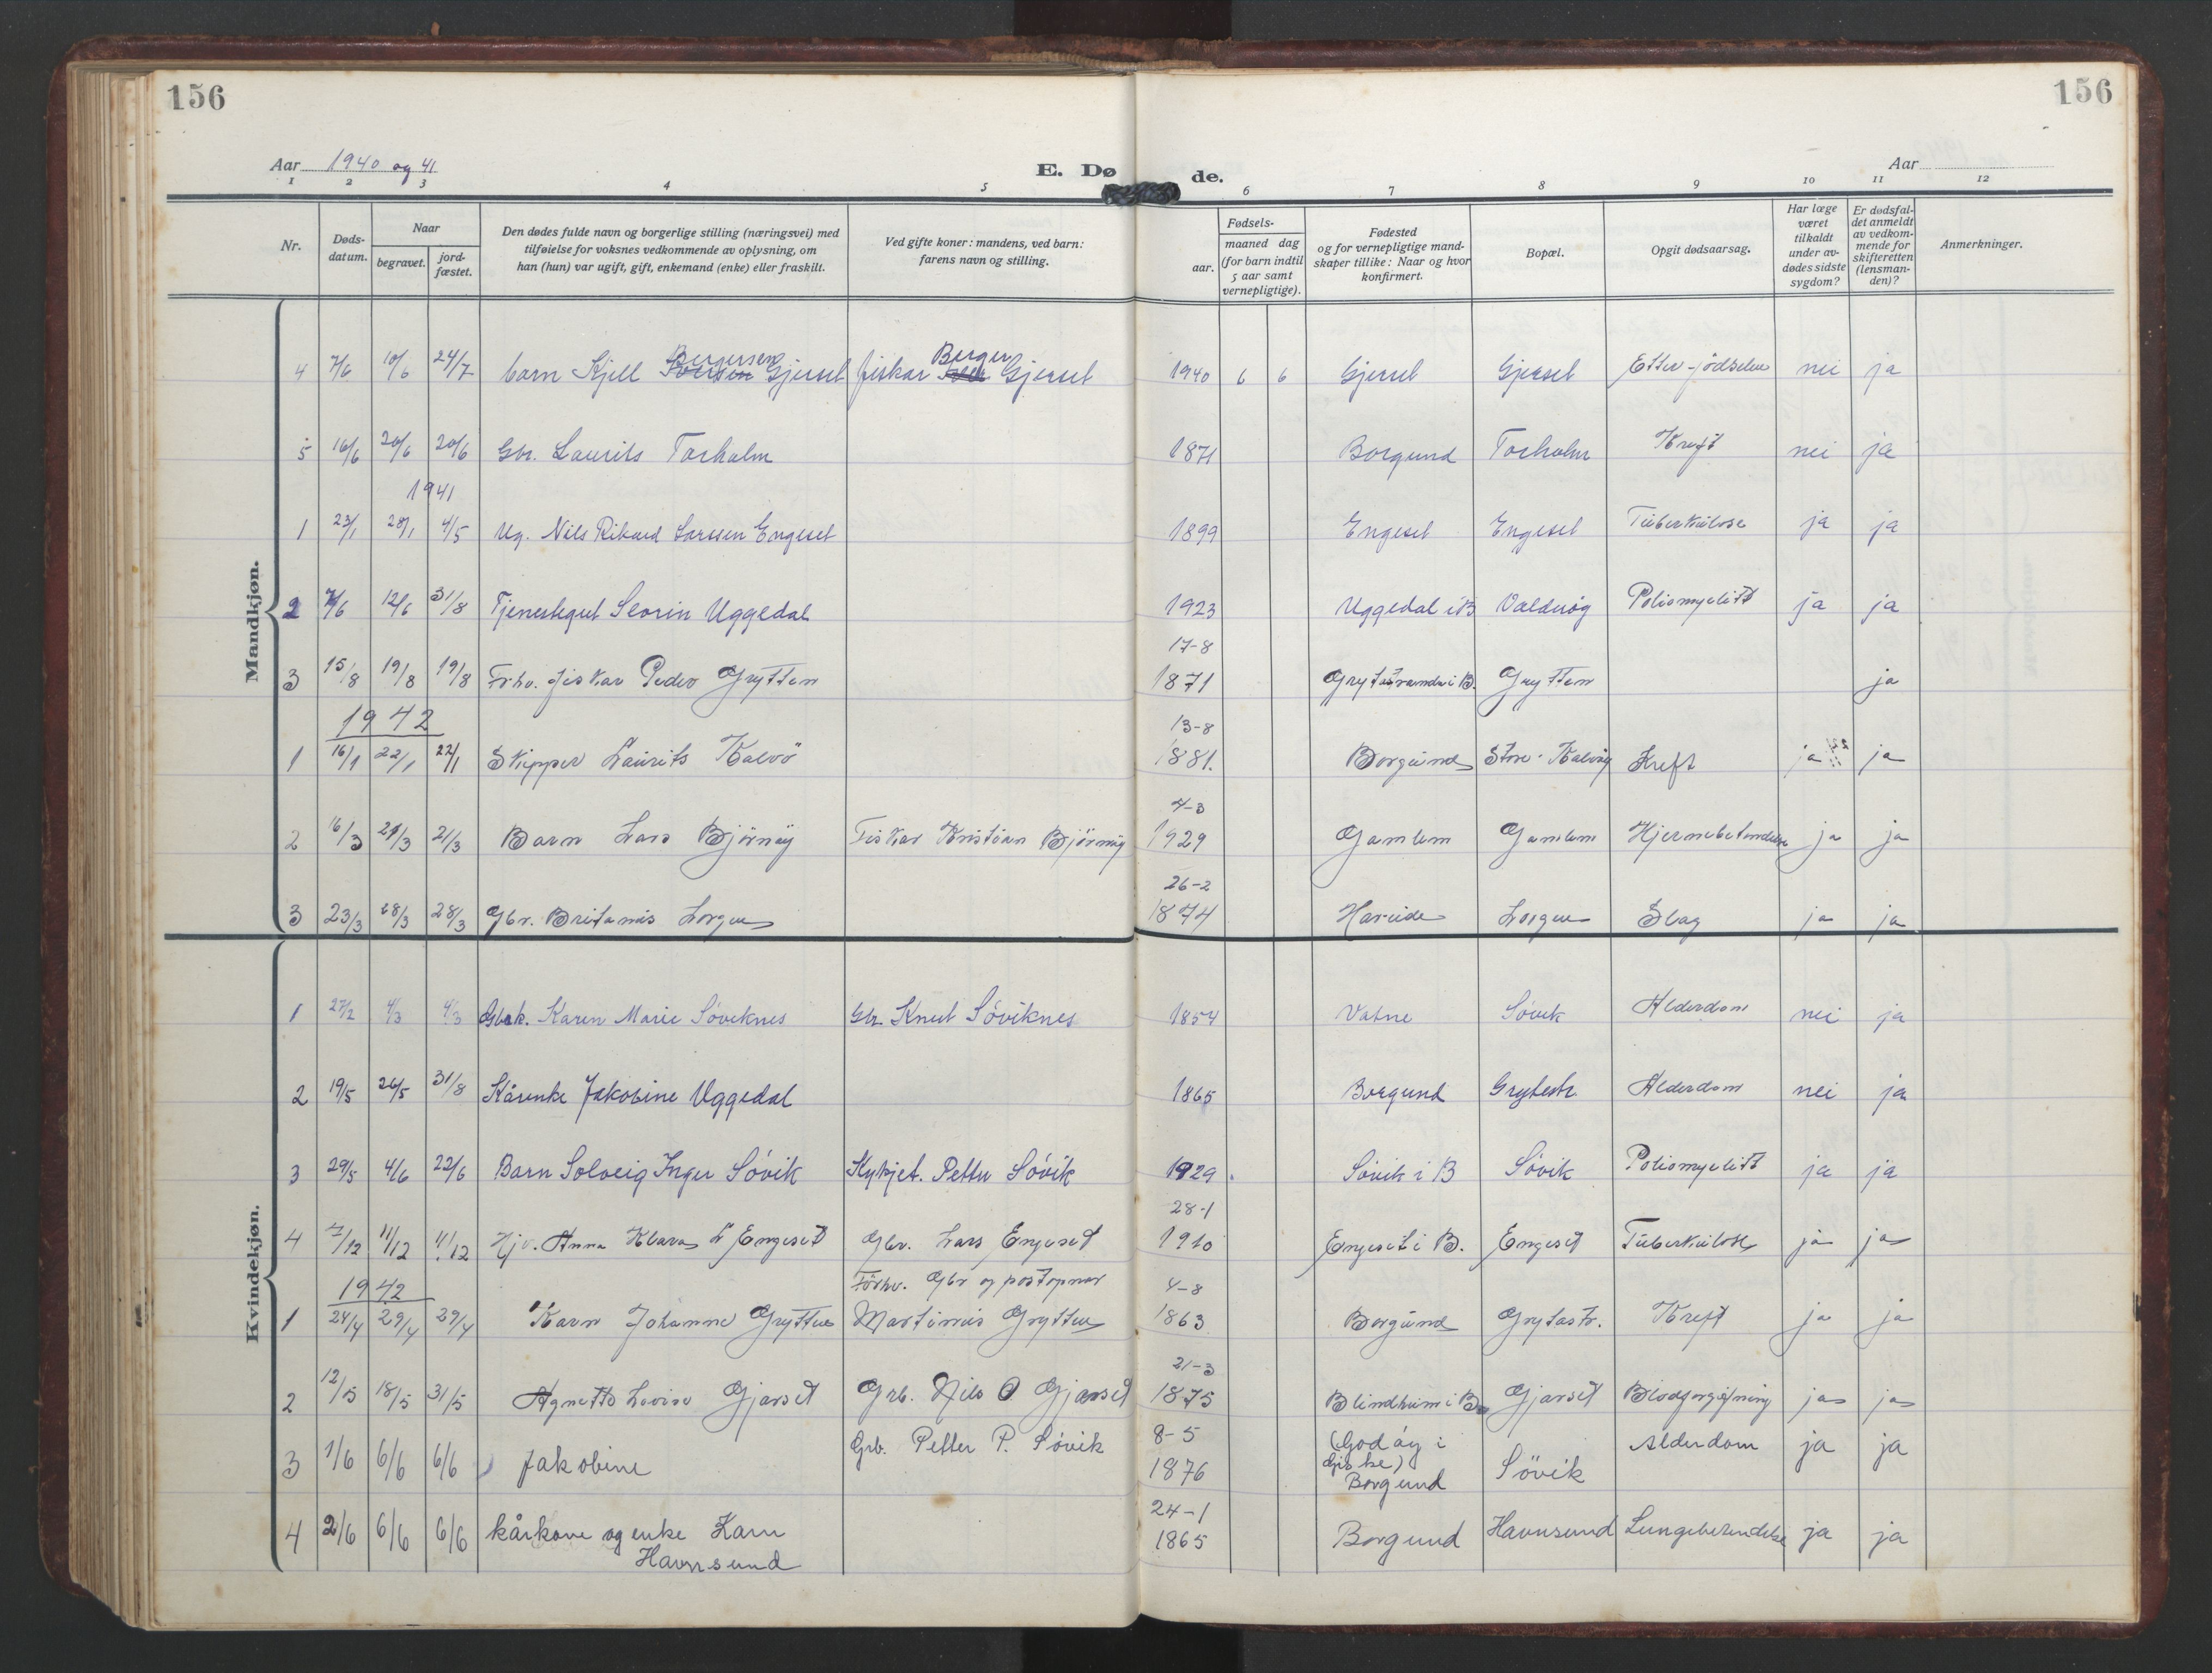 156
156
Aar 1940 og 41
E. Dø de.
Aar
1 2 3 4 5 6 7 8 9 10 11 12
Nr.
Døds-datum.
Naar
begravet.
jord-fæstet.
Den dødes fulde navn og borgerlige stilling (næringsvei) med
tilføielse for voksnes vedkommende av oplysning, om
han (hun) var ugift, gift, enkemand (enke) eller fraskilt.
Ved gifte koner: mandens, ved barn:
farens navn og stilling.
Fødsels-
aar.
maaned dag
(for barn indtil
5 aar samt
vernepligtige).
Fødested
og for vernepligtige mand-
skaper tillike: Naar og hvor
konfirmert.
Bopæl.
Opgit dødsaarsag.
Har læge
været
tilkaldt
under av-
dødes sidste
sygdom?
Er dødsfal-
det anmeldt
av vedkom-
mende for
skifteretten
(lensman-
den)?
Anmerkninger.
Mandkjøn.
Bergersen Berger
4 7/6 10/6 24/7 barn Kjell Gjerset fiskar Gjerset 1940 6 6 Gjerset Gjerset Etter-födselen nei ja
5 16/6 20/6 20/6 Gbr. Laurits Torholm 1871 Borgund Torholm Kreft nei ja
1941
1 23/1 28/1 4/5 Ug. Nils Rikard Larsen Engeset 1899 Engeset Engeset Tuberkulose ja ja
2 7/6 12/6 31/8 Tjenestegut Severin Uggedal 1923 Uggedal i B Valderøy Poliomyelitt ja ja
17-8
3 15/8 19/8 19/8 Förhv. fiskar Peder Grytten 1871 Grytastranda i B. Grytten ja
1942
13-8
1 16/1 22/1 22/1 Skipper Laurits Kalvö 1881. Borgund Store-Kalvöy Kreft ja ja
4-3
2 16/3 21/3 21/3 Barn Lars Björnöy Fiskar Kristian Björnöy 1929 Gamlem Gamlem Hjernebetendelse ja ja
26-2
3 23/3 28/3 28/3 Gbr. Britanius Lorgen 1874 Hareide Lorgen Slag ja ja
Kvindekjøn.
1 27/2 4/3 4/3 Gbrk. Karen Marie Søviknes Gbr. Knut Søviknes 1854 Vatne Søvik Alderdom nei ja
2 19/5 26/5 31/8 Kårenke Jakobine Uggedal 1865 Borgund Grytestr. Alderdom nei ja
3 29/5 4/6 22/6 Barn Solveig Inger Søvik Kyrkjet. Petter Søvik 1929 Søvik i B Søvik Poliomyelitt ja ja
28-1
4 7/12 11/12 11/12 Hjv. Anna Klara L Engeset Gbr. Lars Engeset 1910 Engeset i B. Engeset Tuberkulose ja ja
1942
Förhv. Gbr og postopnar 4-8
1 24/4 29/4 29/4 Karn Johanne Grytten Martinus Grytten 1863 Borgund Grytastr. Kreft ja ja
21-3
2 12/5 18/5 31/5 Agnette Lovise Gjerset Grb. Nils O Gjerset 1875 Blindheim i B. Gjerset Blodforgiftning ja ja
3 1/6 6/6 6/6 Jakobine Grb. Petter P. Søvik 8-5 1876 (Godøy i Giske) Borgund Søvik Alderdom ja ja
24-1
4 2/6 6/6 6/6 kårkone og enke Karn Havnsund 1865 Borgund Havnsund Lungebetendelse ja ja